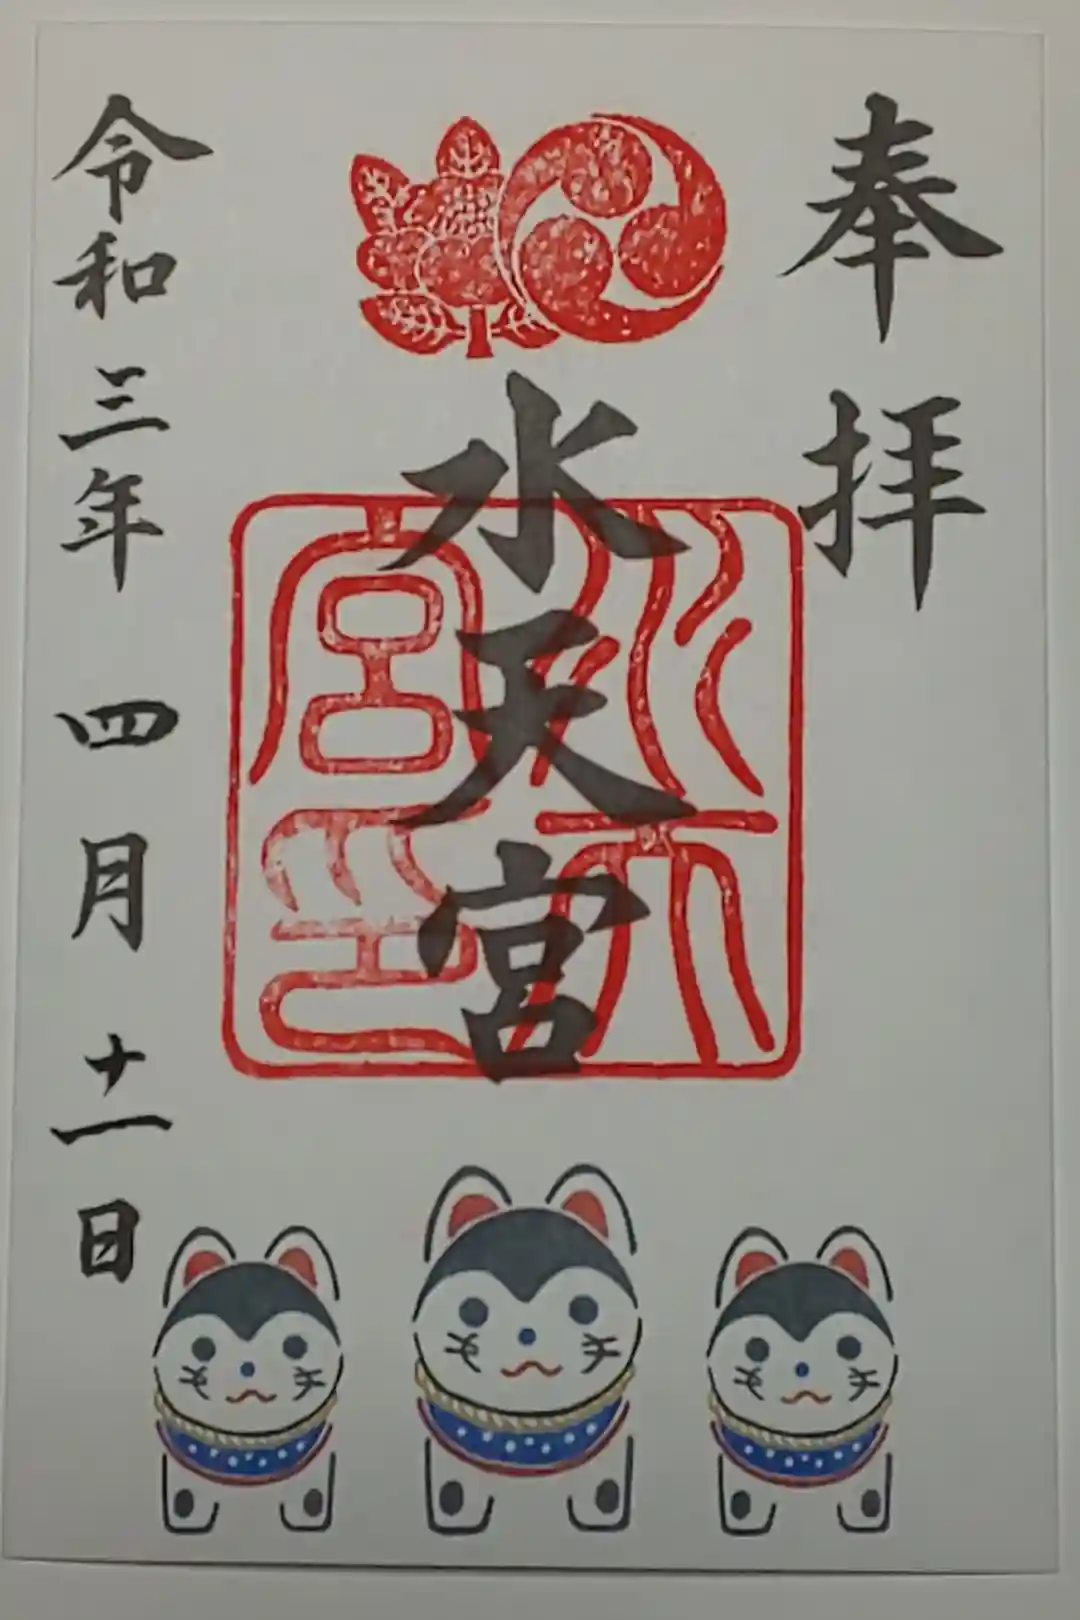 奉拝
水天宮
水天宮印
令和三年四月十一日